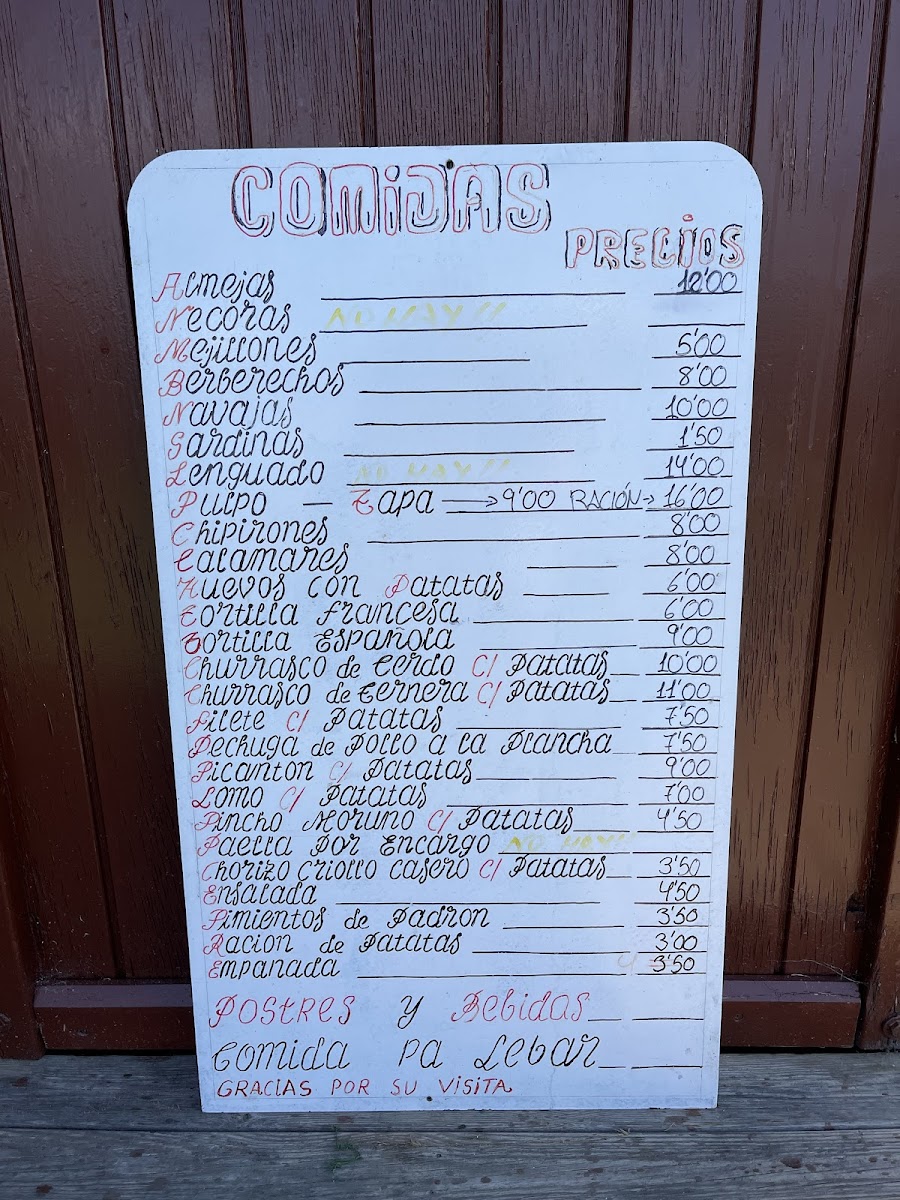 COMIDAS
PRECIOS
Almejas 12'00
Necoras NO HAY!!
Mejillones 5'00
Berberechos 8'00
Navajas 10'00
Sardinas 1'50
Lenguado NO HAY!! 14'00
Pulpo — Tapa → 9'00 RACIÓN → 16'00
Chipirones 8'00
Calamares 8'00
Huevos con Patatas 6'00
Tortilla francesa 6'00
Tortilla Española 9'00
Churrasco de Cerdo C/ Patatas 10'00
Churrasco de Ternera C/ Patatas 11'00
Filete C/ Patatas 7'50
Pechuga de Pollo a la Plancha 7'50
Picanton C/ Patatas 9'00
Lomo C/ Patatas 7'00
Pincho Moruno C/ Patatas 4'50
Paella Por Encargo NO HAY!!
Chorizo Criollo casero C/ Patatas 3'50
Ensalada 4'50
Pimientos de Padron 3'50
Racion de Patatas 3'00
Empanada 3'50
Postres y Bebidas
Comida pa Lebar
GRACIAS POR SU VISITA